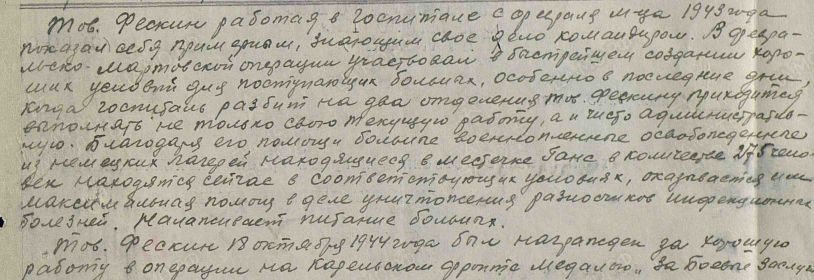 Тов. Фескин работая в госпитале с февраля м-ца 1943 года
показал себя примерным, знающим свое дело командиром. В февра-
льско-мартовской операции участвовал в быстрейшем создании хоро-
ших условий для поступающих больных, особенно в последние дни,
когда госпиталь разбит на два отделения тов. Фескину приходится
выполнять не только свою текущую работу, а и чисто административ-
ную. Благодаря его помощи больные военнопленные освобожденные
из немецких лагерей находящиеся в местечке Ганс в количестве 275 чело-
век находятся сейчас в соответствующих условиях, оказывается им
максимальная помощь в деле уничтожения разносчиков инфекционных
болезней. Налаживает питание больных.
Тов. Фескин 18 октября 1944 года был награжден за хорошую
работу в операции на Карельском фронте медалью „За боевые заслуг